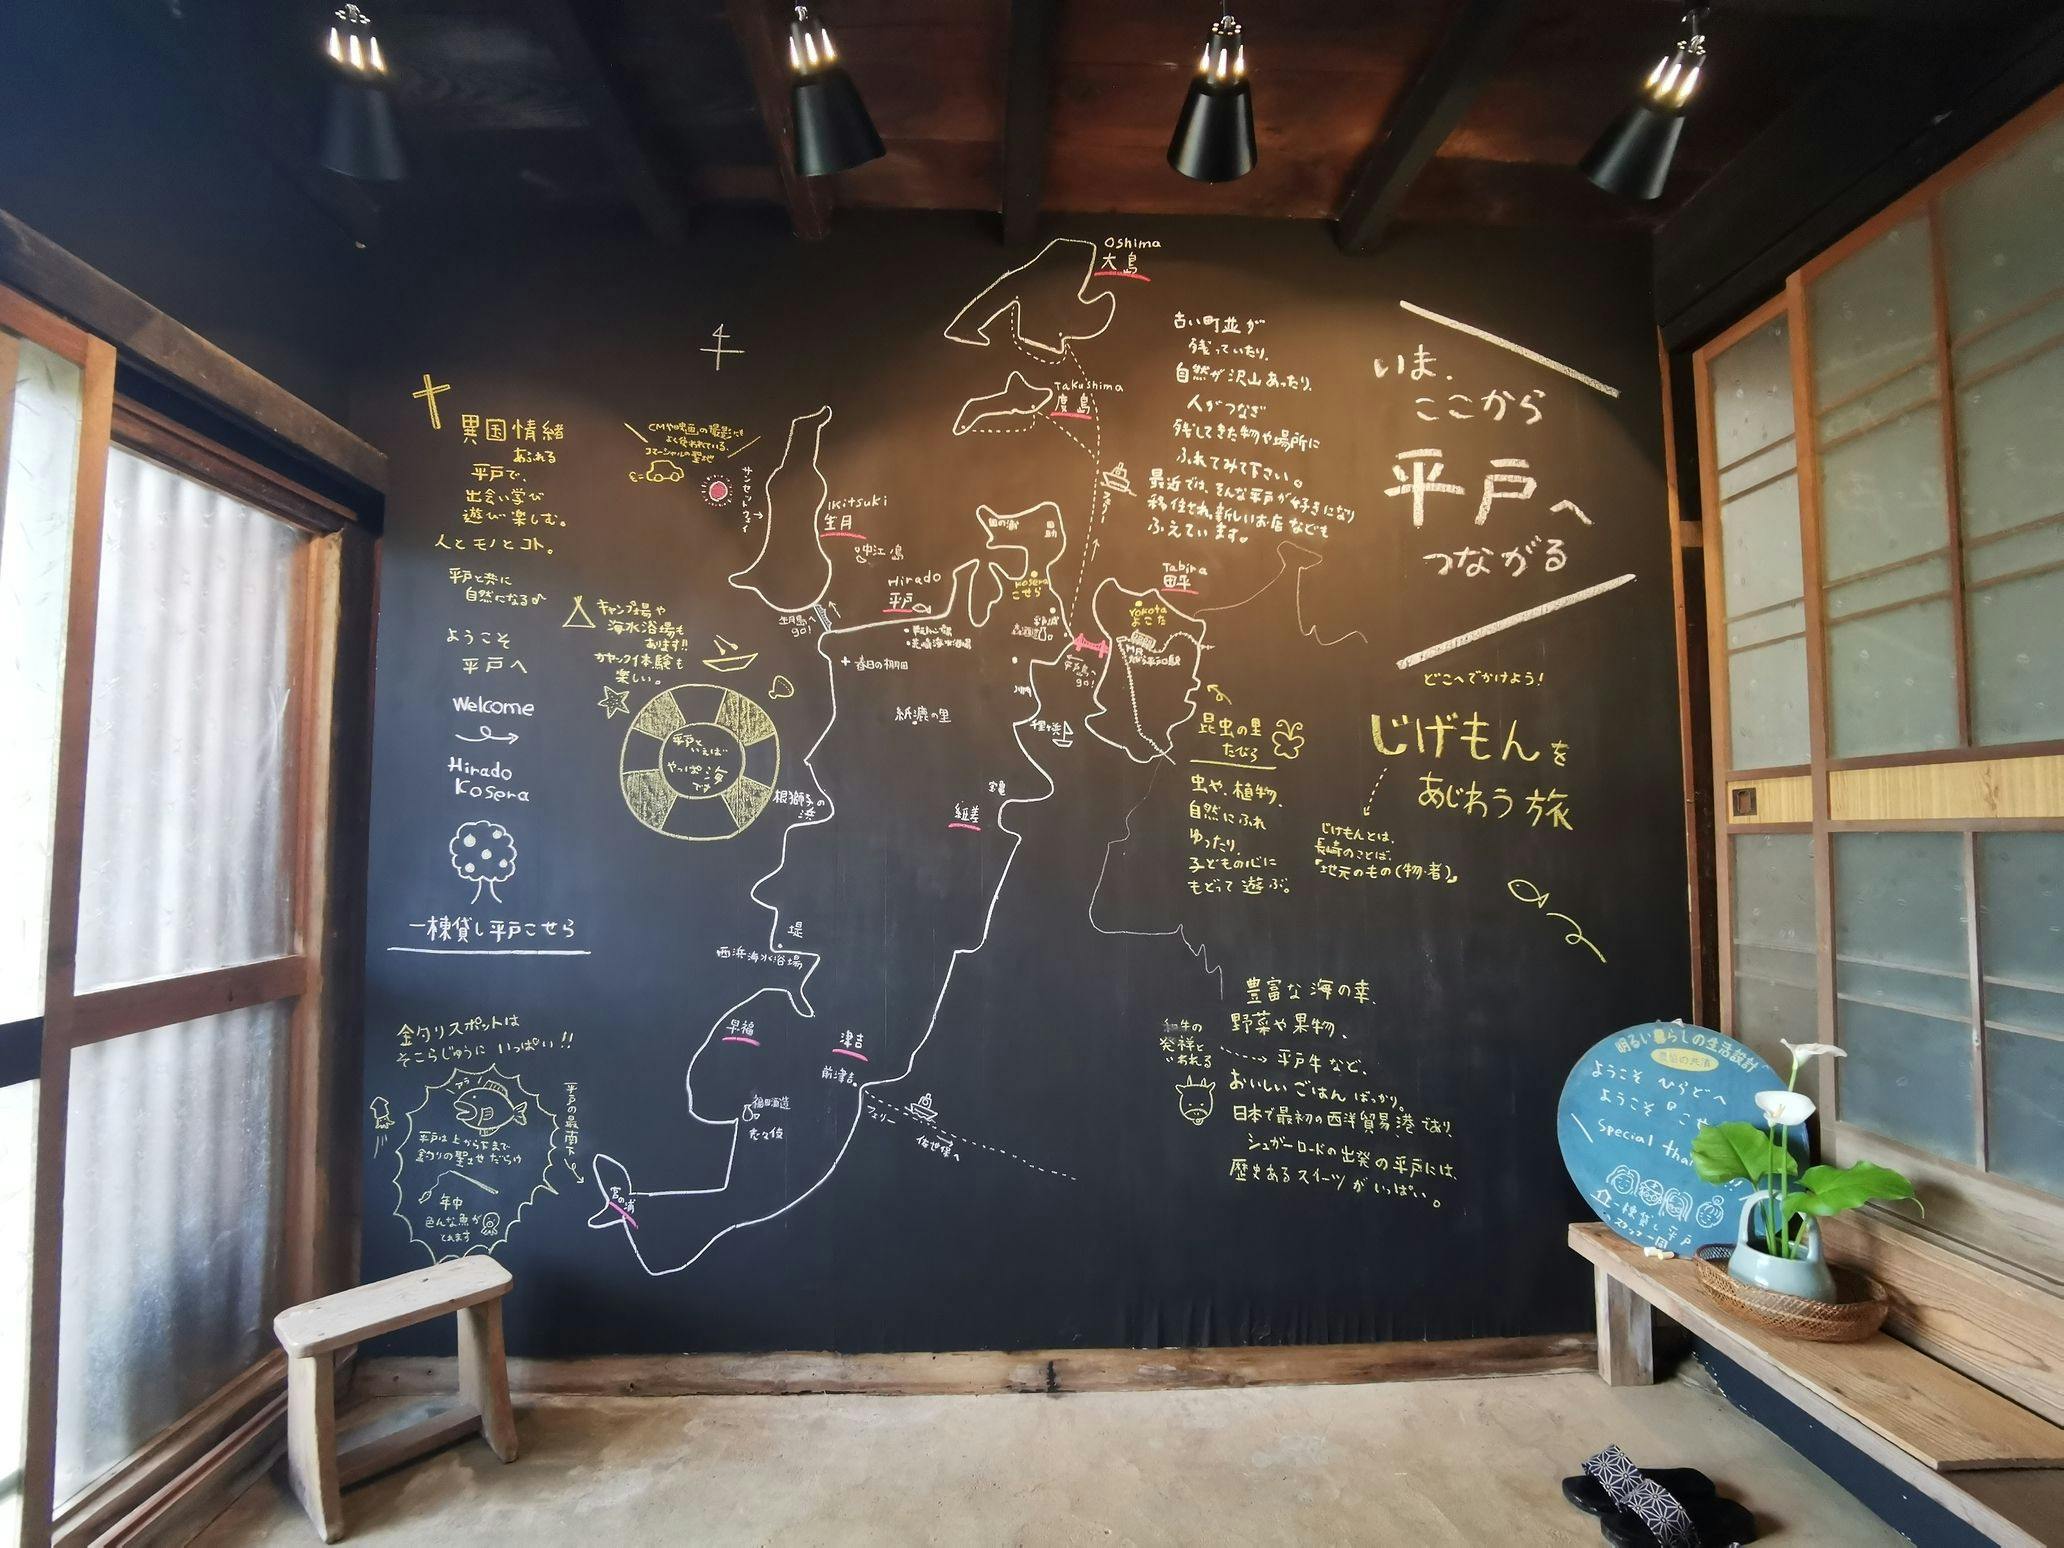 異国情緒
あふれる
平戸で、
出会い学び
遊び楽しむ。
人とモノとコト。
平戸と共に
自然になる
ようこそ
平戸へ
Welcome
Hirado
Kosera
一棟貸し平戸こせら
釣りスポットは
そこらじゅうに いっぱい!!
アラ!
平戸は上から下まで
釣りの聖地だらけ
年中
色んな魚が
とれます
平戸の最南下
CMや映画の撮影にも
よく使われている、
コマーシャルの聖地
サンセットウェイ
キャンプ場や
海水浴場も
あります!!
カヤック体験も
楽しい。
平戸と
いえば
やっぱ海
です
Oshima
大島
Takushima
度島
フェリー
Ikitsuki
生月
中江ノ島
生月島へ
go!
Hirado
平戸
田の浦
田助
Kosera
こせら
平戸城
春日の棚田
紙漉の里
川内
千里ヶ浜
平戸島へ
go!
Tabira
田平
Yokota
よこた
MR
たびら平戸口駅
根獅子の
浜
宝亀
紐差
堤
西浜海水浴場
早福
津吉
前津吉
フェリー
佐世保へ
福田酒造
志々伎
宮の浦
古い町並が
残っていたり、
自然が沢山あったり、
人がつなぎ
残してきた物や場所に
ふれてみて下さい。
最近では、そんな平戸が好きになり
移住され、新しいお店なども
ふえています。
いま、
ここから
平戸へ
つながる
どこへでかけよう!
じげもんを
あじわう旅
じげもんとは、
長崎のことば、
「地元のもの(物・者)」
昆虫の里
たびら
虫や、植物、
自然にふれ
ゆったり、
子どもの心に
もどって遊ぶ。
豊富な海の幸、
野菜や果物、
和牛の
発祥と
いわれる
平戸牛など、
おいしいごはんばっかり。
日本で最初の西洋貿易港であり、
シュガーロードの出発の平戸には、
歴史あるスイーツがいっぱい。
明るい暮らしの生活設計
農協の共済
ようこそ ひらどへ
ようこそ
Special
一棟貸し 平戸
スタッフ一同